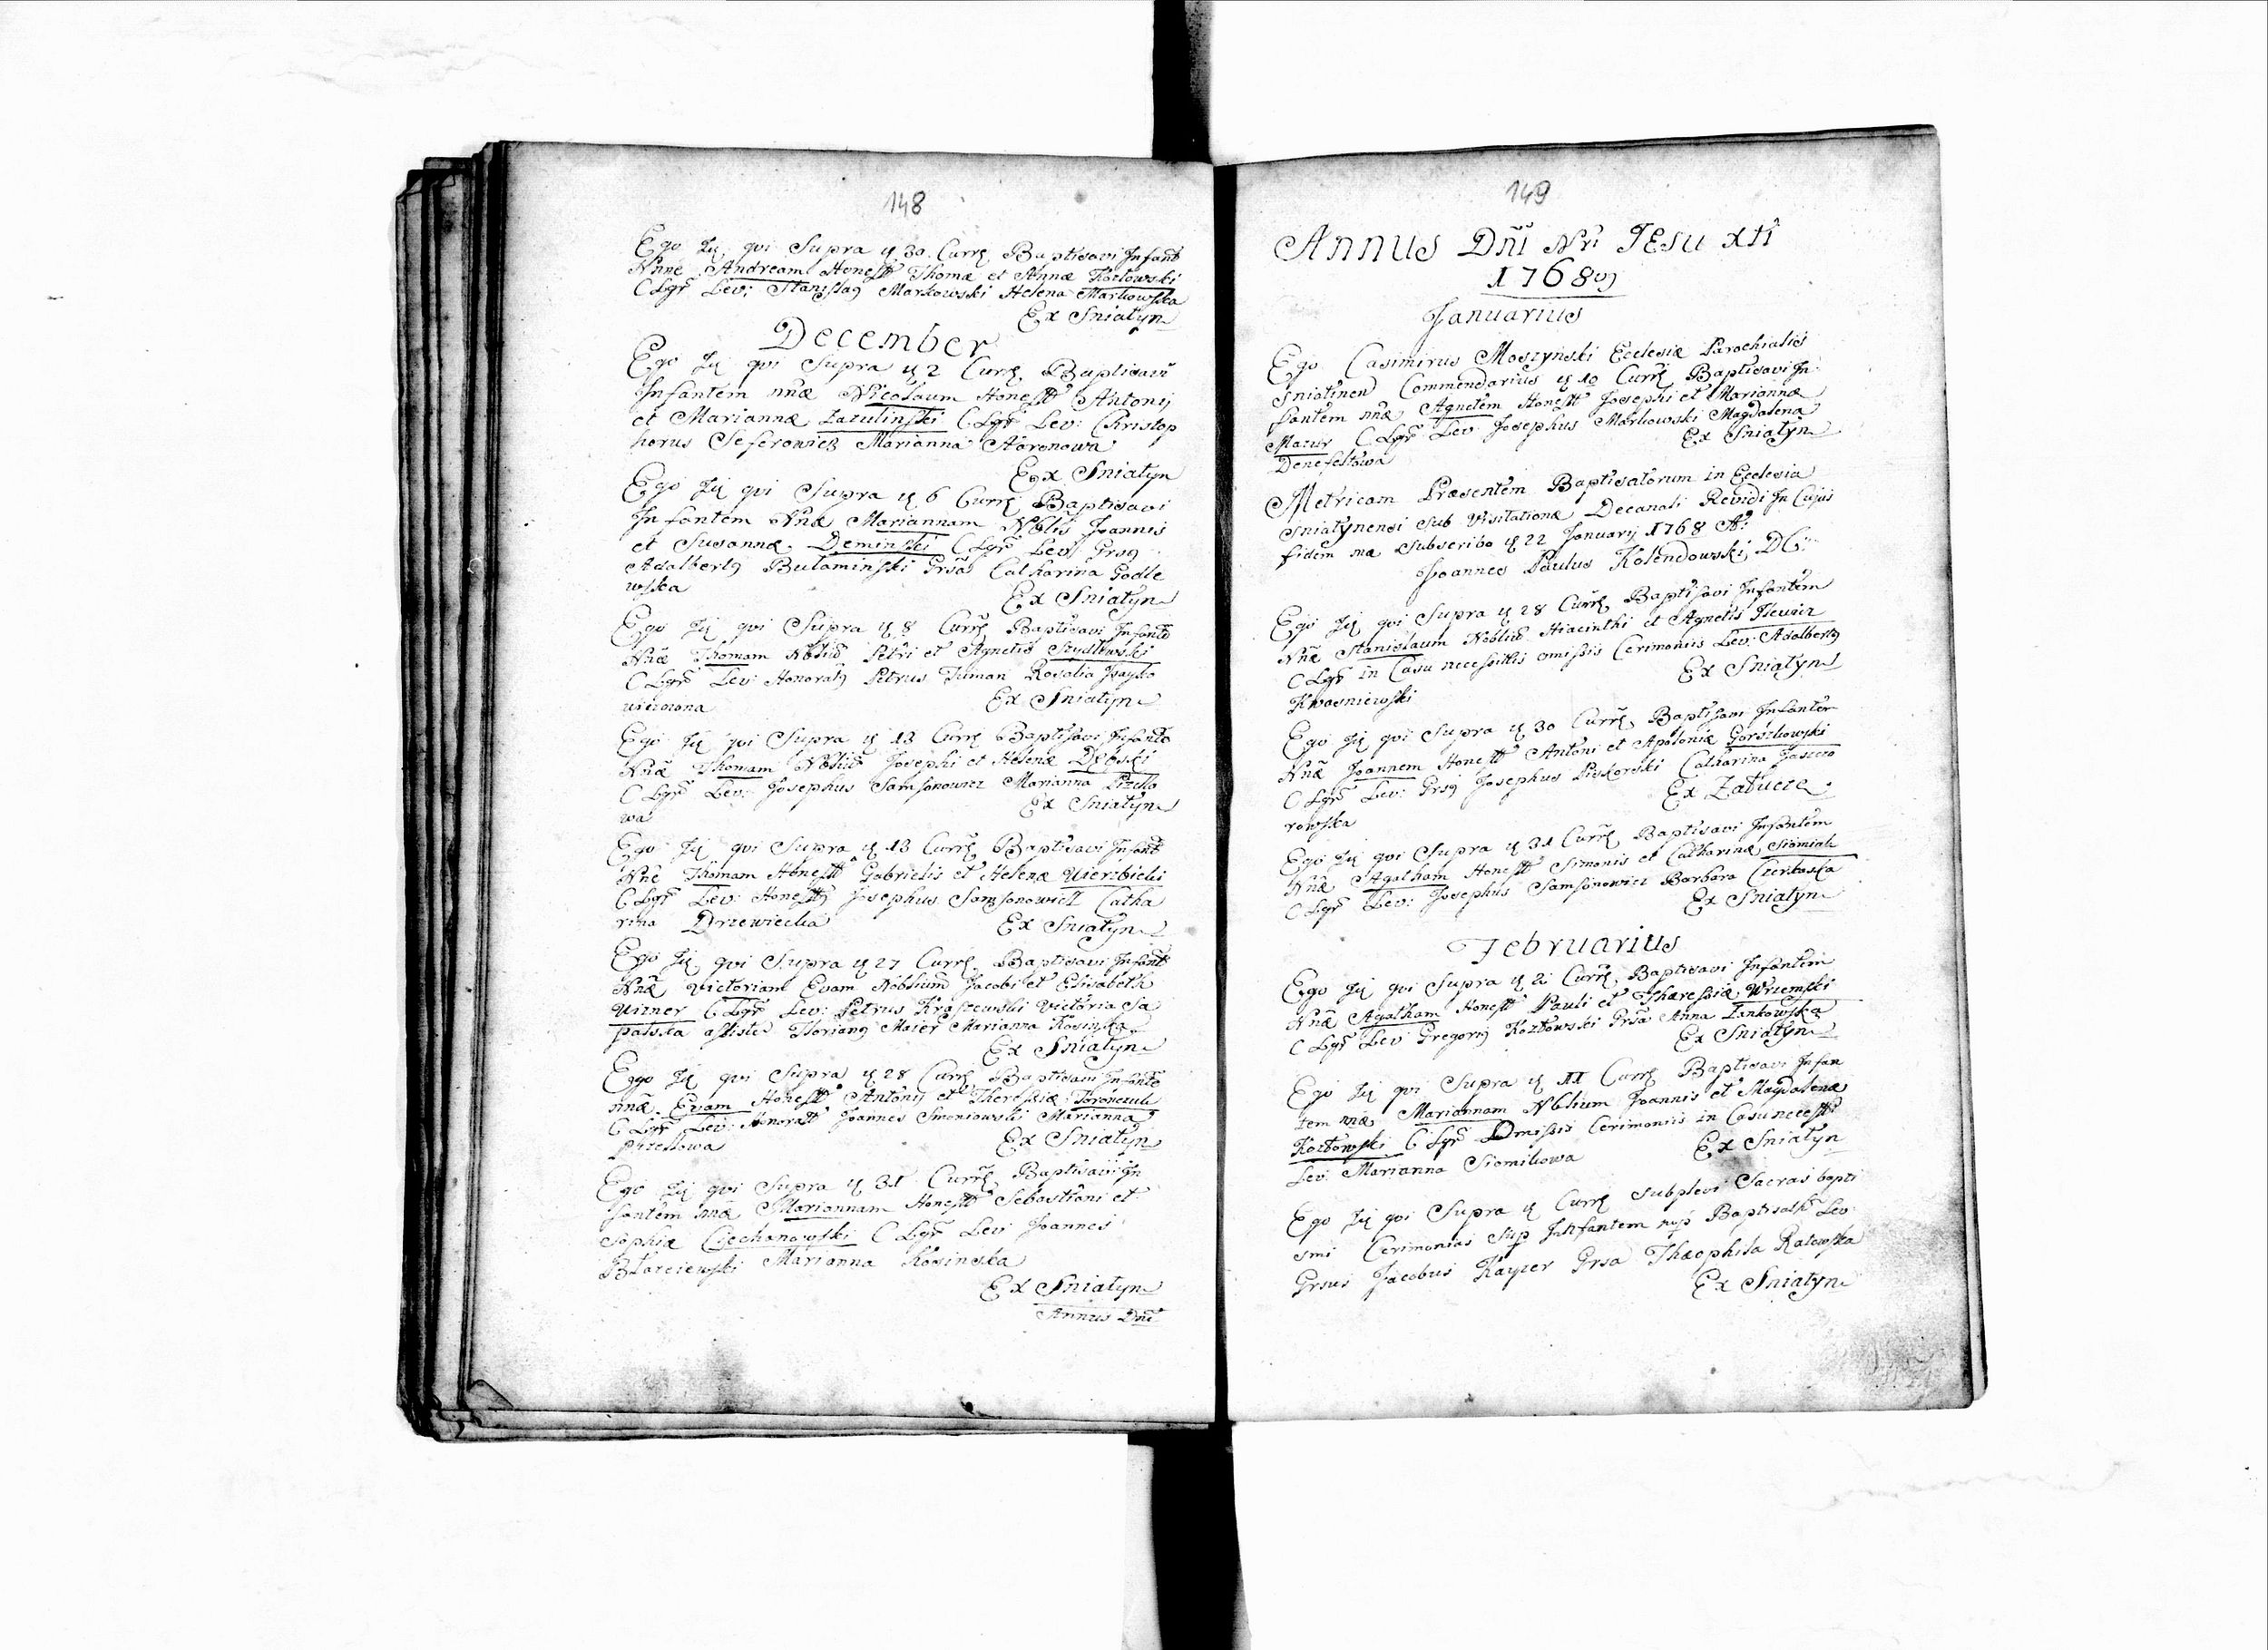 148
Ego Idē qui Supra d 30 Currē Baptisavi Infant
Nñne Andream Honestt Thomæ et Annæ Kozłowski
C Lgr Lev: Stanislaq Markowski Helena Markowska
Ex Sniatyn
December
Ego Idē qui Supra d 2 Currē Baptisavi
Infantem nñæ Nicolaum Honestt Antonij
et Mariannæ Łazulinski C Lgr Lev: Christop
horus Seferowicz Marianna Aaronowa
Ex Sniatyn
Ego Idē qui Supra d 6 Currē Baptisavi
Infantem Nñæ Mariannam Nblis Joannis
et Susannæ Deminski C Lgr Lev: Grsq
Adalbertq Butaminski Grsa Catharina Godle
wska
Ex Sniatyn
Ego Idē qui Supra d 8 Currē Baptisavi Infante
Nñæ Thomam Nbliū Petri et Agnetis Szydłowski
C Lgr Lev: Honoratq Petrus Tuman Rosalia Isayko
wiczowna
Ex Sniatyn
Ego Idē qui Supra d 13 Currē Baptisavi Infante
Nñæ Thomam Nbliū Josephi et Helenæ Dębski
C Lgr Lev: Josephus Samsonowicz Marianna Pzello
wa
Ex Sniatyn
Ego Idē qui Supra d 13 Currē Baptisavi Infant
Nñe Thomam Honestt Gabrielis et Helenæ Wierzbicki
C Lgr Lev: Honestq Josephus Samsonowicz Catha
rina Drzewiecka
Ex Sniatyn
Ego Idē qui Supra d 27 Currē Baptisavi Infant
Nñæ Victoriam Evam Nobilium Jacobi et Elisabeth
Uizner C Lgr Lev: Petrus Kraszewski Victoria Sa
palska assiste Florianq Maier Marianna Kosinska
Ex Sniatyn
Ego Idē qui Supra d 28 Currē Baptisavi Infante
nñæ Evam Honestt Antonij et Theressiæ Toronczuk
C Lgr Lev: Honoratt Joannes Smoniowski Marianna
Przellowa
Ex Sniatyn
Ego Idē qui Supra d 31 Currē Baptisavi In
fantem nñæ Mariannam Honestt Sebastiani et
Sophiæ Ciechanowski C Lgr Lev Joannes
Błazeiewski Marianna Kosinska
Ex Sniatyn
Annus Dñi
149
Annus Dñi Nri JEsu xti
1768vq
Januarius
Ego Casimirus Moszynski Ecclesiæ Parochialis
Sniatinen Commendarius d 10 Currē Baptisavi In
fantem nñæ Agnetem Honestt Josephi et Mariannæ
Mazur C Lgr Lev Josephus Markowski Magdalena
Denefeltowa
Ex Sniatyn
Metricam Præsentem Baptisatorum in Ecclesia
Sniatynensi Sub Visitationæ Decanali Revidi In Cujus
fidem mæ Subscribo d 22 Januarij 1768 Aº
Joannes Paulus Kolendowski DC
Ego Idē qui Supra d 28 Currē Baptisavi Infantem
Nñæ Stanislaum Nobliū Hiacinthi et Agnetis
C Lgr in Casu necessittis omissis Cerimoniis Lev: Adalbertq
Kwasniewski
Ex Sniatyn
Ego Idē qui Supra d 30 Currē Baptisavi Infantem
Nñæ Joannem Honestt Antoni et Apoloniæ Gorszkowski
C Lgr Lev: Grsq Josephus Piskorski Catharina Jaszczo
rowska
Ex Załucze
Ego Idē qui Supra d 31 Currē Baptisavi Infantem
Nñæ Agatham Honestt Simonis et Catharinæ Siomiak
C Lgr Lev: Josephus Samsonowicz Barbara Czerkaska
Ex Sniatyn
Februarius
Ego Idē qui Supra d 2 Currē Baptisavi Infantem
Nñæ Agatham Honestt Pauli et Thæressiæ Wrzemski
C Lgr Lev Gregoriq Kozłowski Grsa Anna Zankowska
Ex Sniatyn
Ego Idē qui Supra d 11 Currē Baptisavi Infan
tem nñæ Mariannam Nblium Joannis et Magdalenæ
Kozłowski C Lgr Omissis Cerimoniis in Casu necestt
Lev: Marianna Siomikowa
Ex Sniatyn
Ego Idē qui Supra d Currē Subplevi Sacras bapti
smi Cerimonias Sup Infantem nup Baptisatt Lev
Grsus Jacobus Kayzer Grsa Thæophila Ratowska
Ex Sniatyn